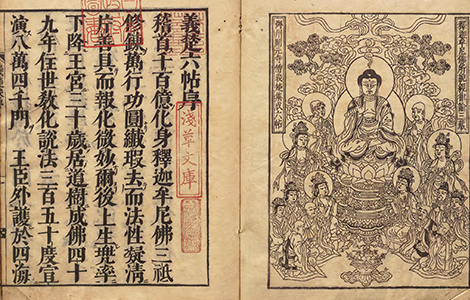 義楚六帖序
稽首千百億化身釋迦牟尼佛三祇
修鍊萬行功圓纖瑕去而法性凝清
片善具而報化微妙爾後上生兜率
下降王宮三十歲居道樹成佛四十
九年住世敎化說法三百五十度宣
演八萬四千門 王臣外護於四海
淺草文庫